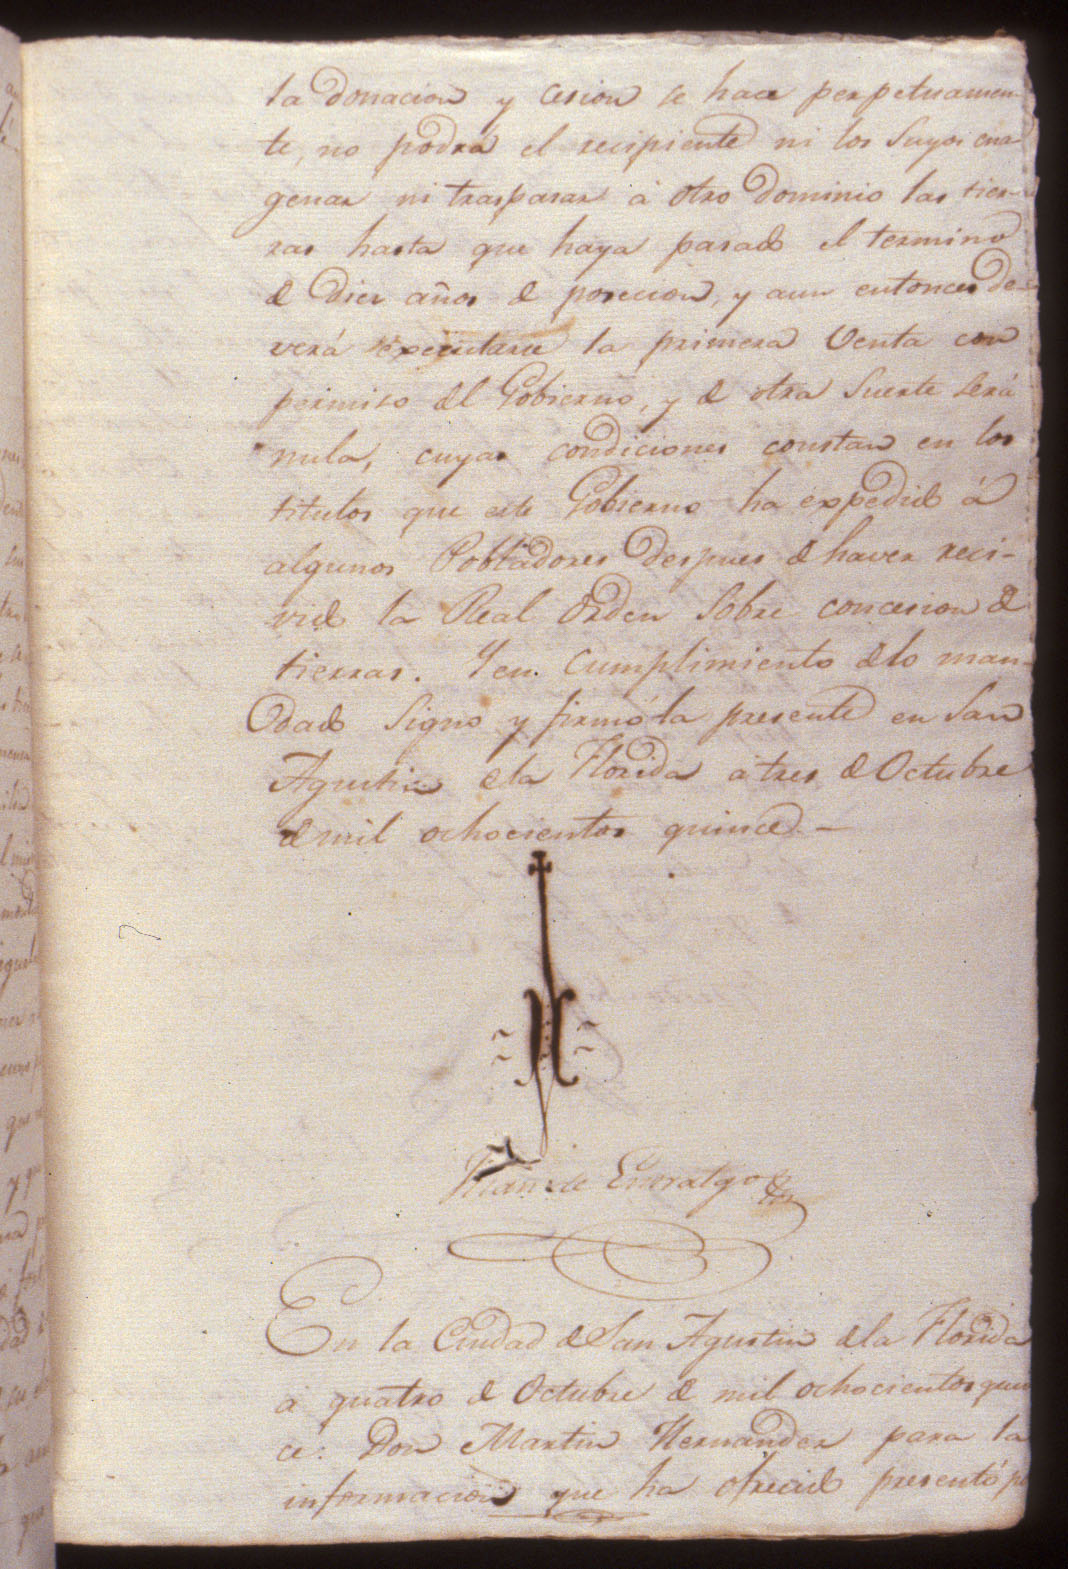 la donacion y cesion se hace perpetuamen-
te, no podrá el recipiente ni los Suyos ena-
genar ni traspasar á otro dominio las tier-
ras hasta que haya pasado el termino
de Diez años de posecion, y aun entonces De-
verá executarse la primera Venta con
permiso del Gobierno, y de otra Suerte será
nula, cuyas condiciones constan en los
titulos que este Gobierno ha expedido á
algunos Pobladores despues de haver reci-
vido la Real Orden Sobre concesion de
tierras. Y en Cumplimiento de lo man-
dado Signo y firmó la presente en San
Agustin de la Florida a tres de Octubre
de mil ochocientos quince.—
Juan de Entralgo
En la Ciudad de San Agustin de la Florida
a quatro de Octubre de mil ochocientos quin
ce: Don Martin Hernandez para la
informacion que ha ofrecido presentó p